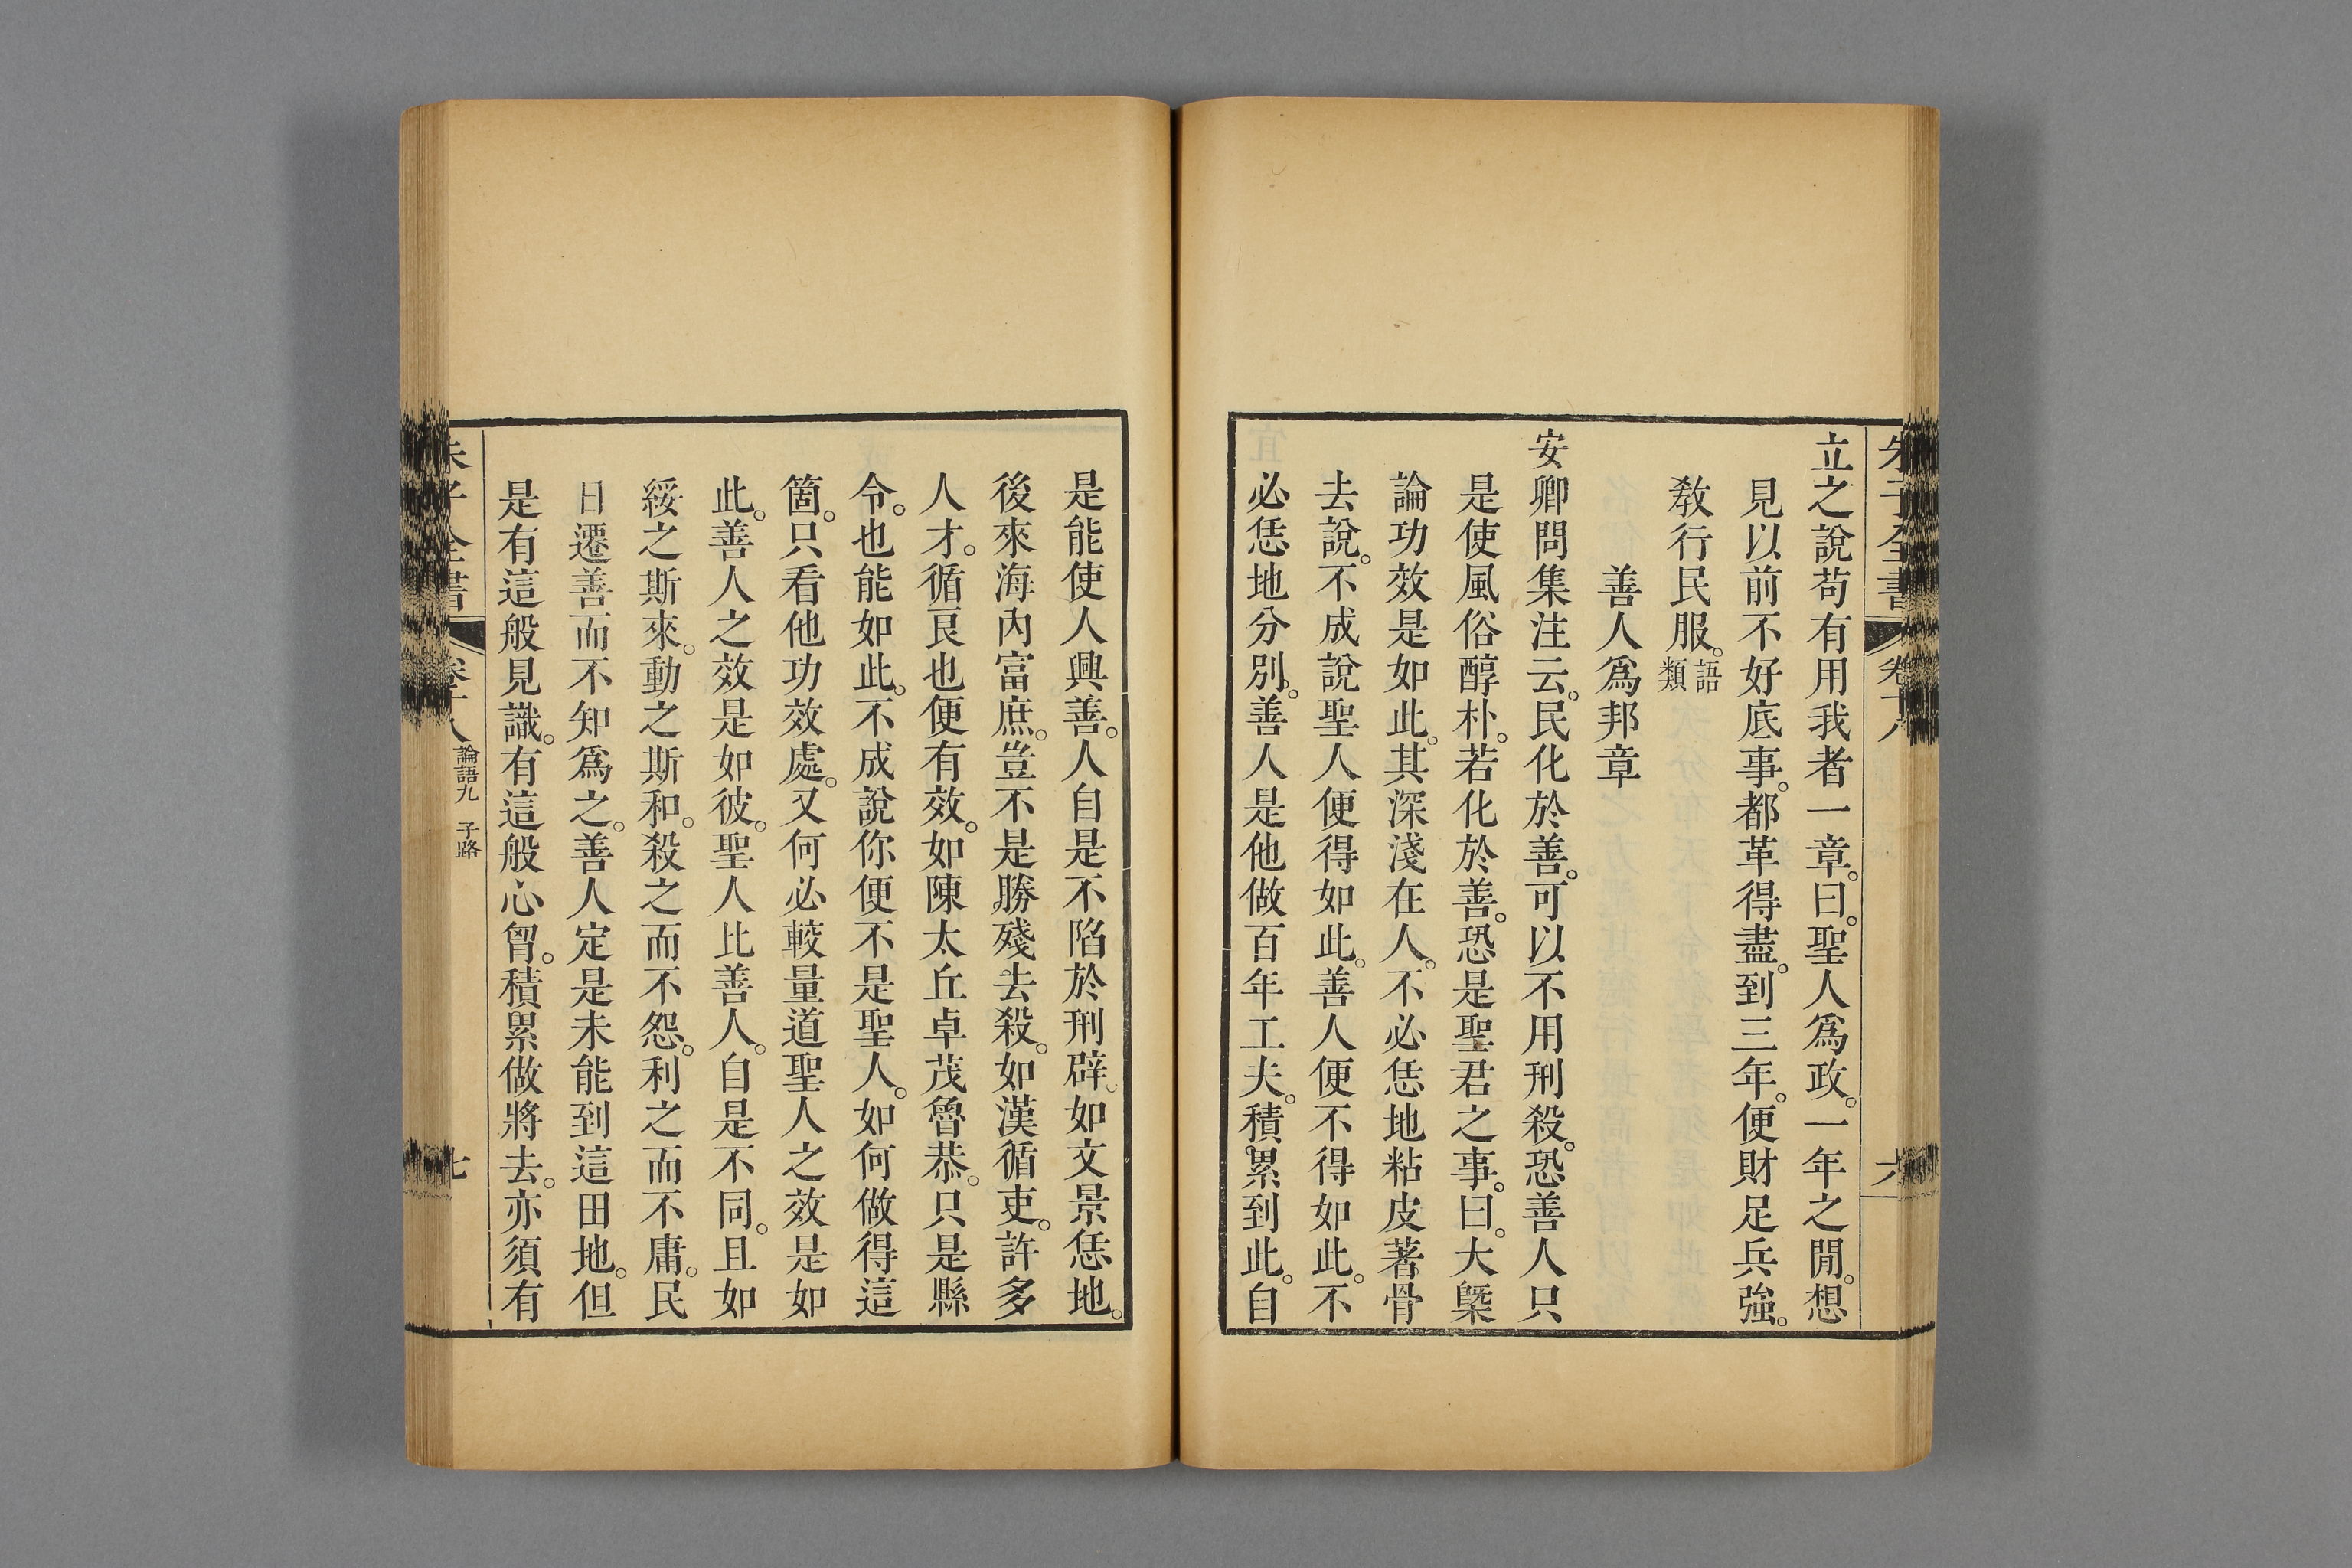 朱子全書 卷十八 六
立之說苟有用我者一章。曰。聖人爲政。一年之閒。想
見以前不好底事。都革得盡。到三年。便財足兵強。
敎行民服。語類
善人爲邦章
安卿問集注云。民化於善。可以不用刑殺。恐善人只
是使風俗醇朴。若化於善。恐是聖君之事。曰。大槩
論功效是如此。其深淺在人。不必恁地粘皮著骨
去說。不成說聖人便得如此。善人便不得如此。不
必恁地分別。善人是他做百年工夫。積累到此。自
是能使人興善。人自是不陷於刑辟。如文景恁地。
後來海內富庶。豈不是勝殘去殺。如漢循吏。許多
人才。循良也便有效。如陳太丘卓茂魯恭。只是縣
令。也能如此。不成說你便不是聖人。如何做得這
箇。只看他功效處。又何必較量道聖人之效是如
此。善人之效是如彼。聖人比善人。自是不同。且如
綏之斯來。動之斯和。殺之而不怨。利之而不庸。民
日遷善而不知爲之。善人定是未能到這田地。但
是有這般見識。有這般心胷。積累做將去。亦須有
朱子全書 卷十八 論語九 子路 七